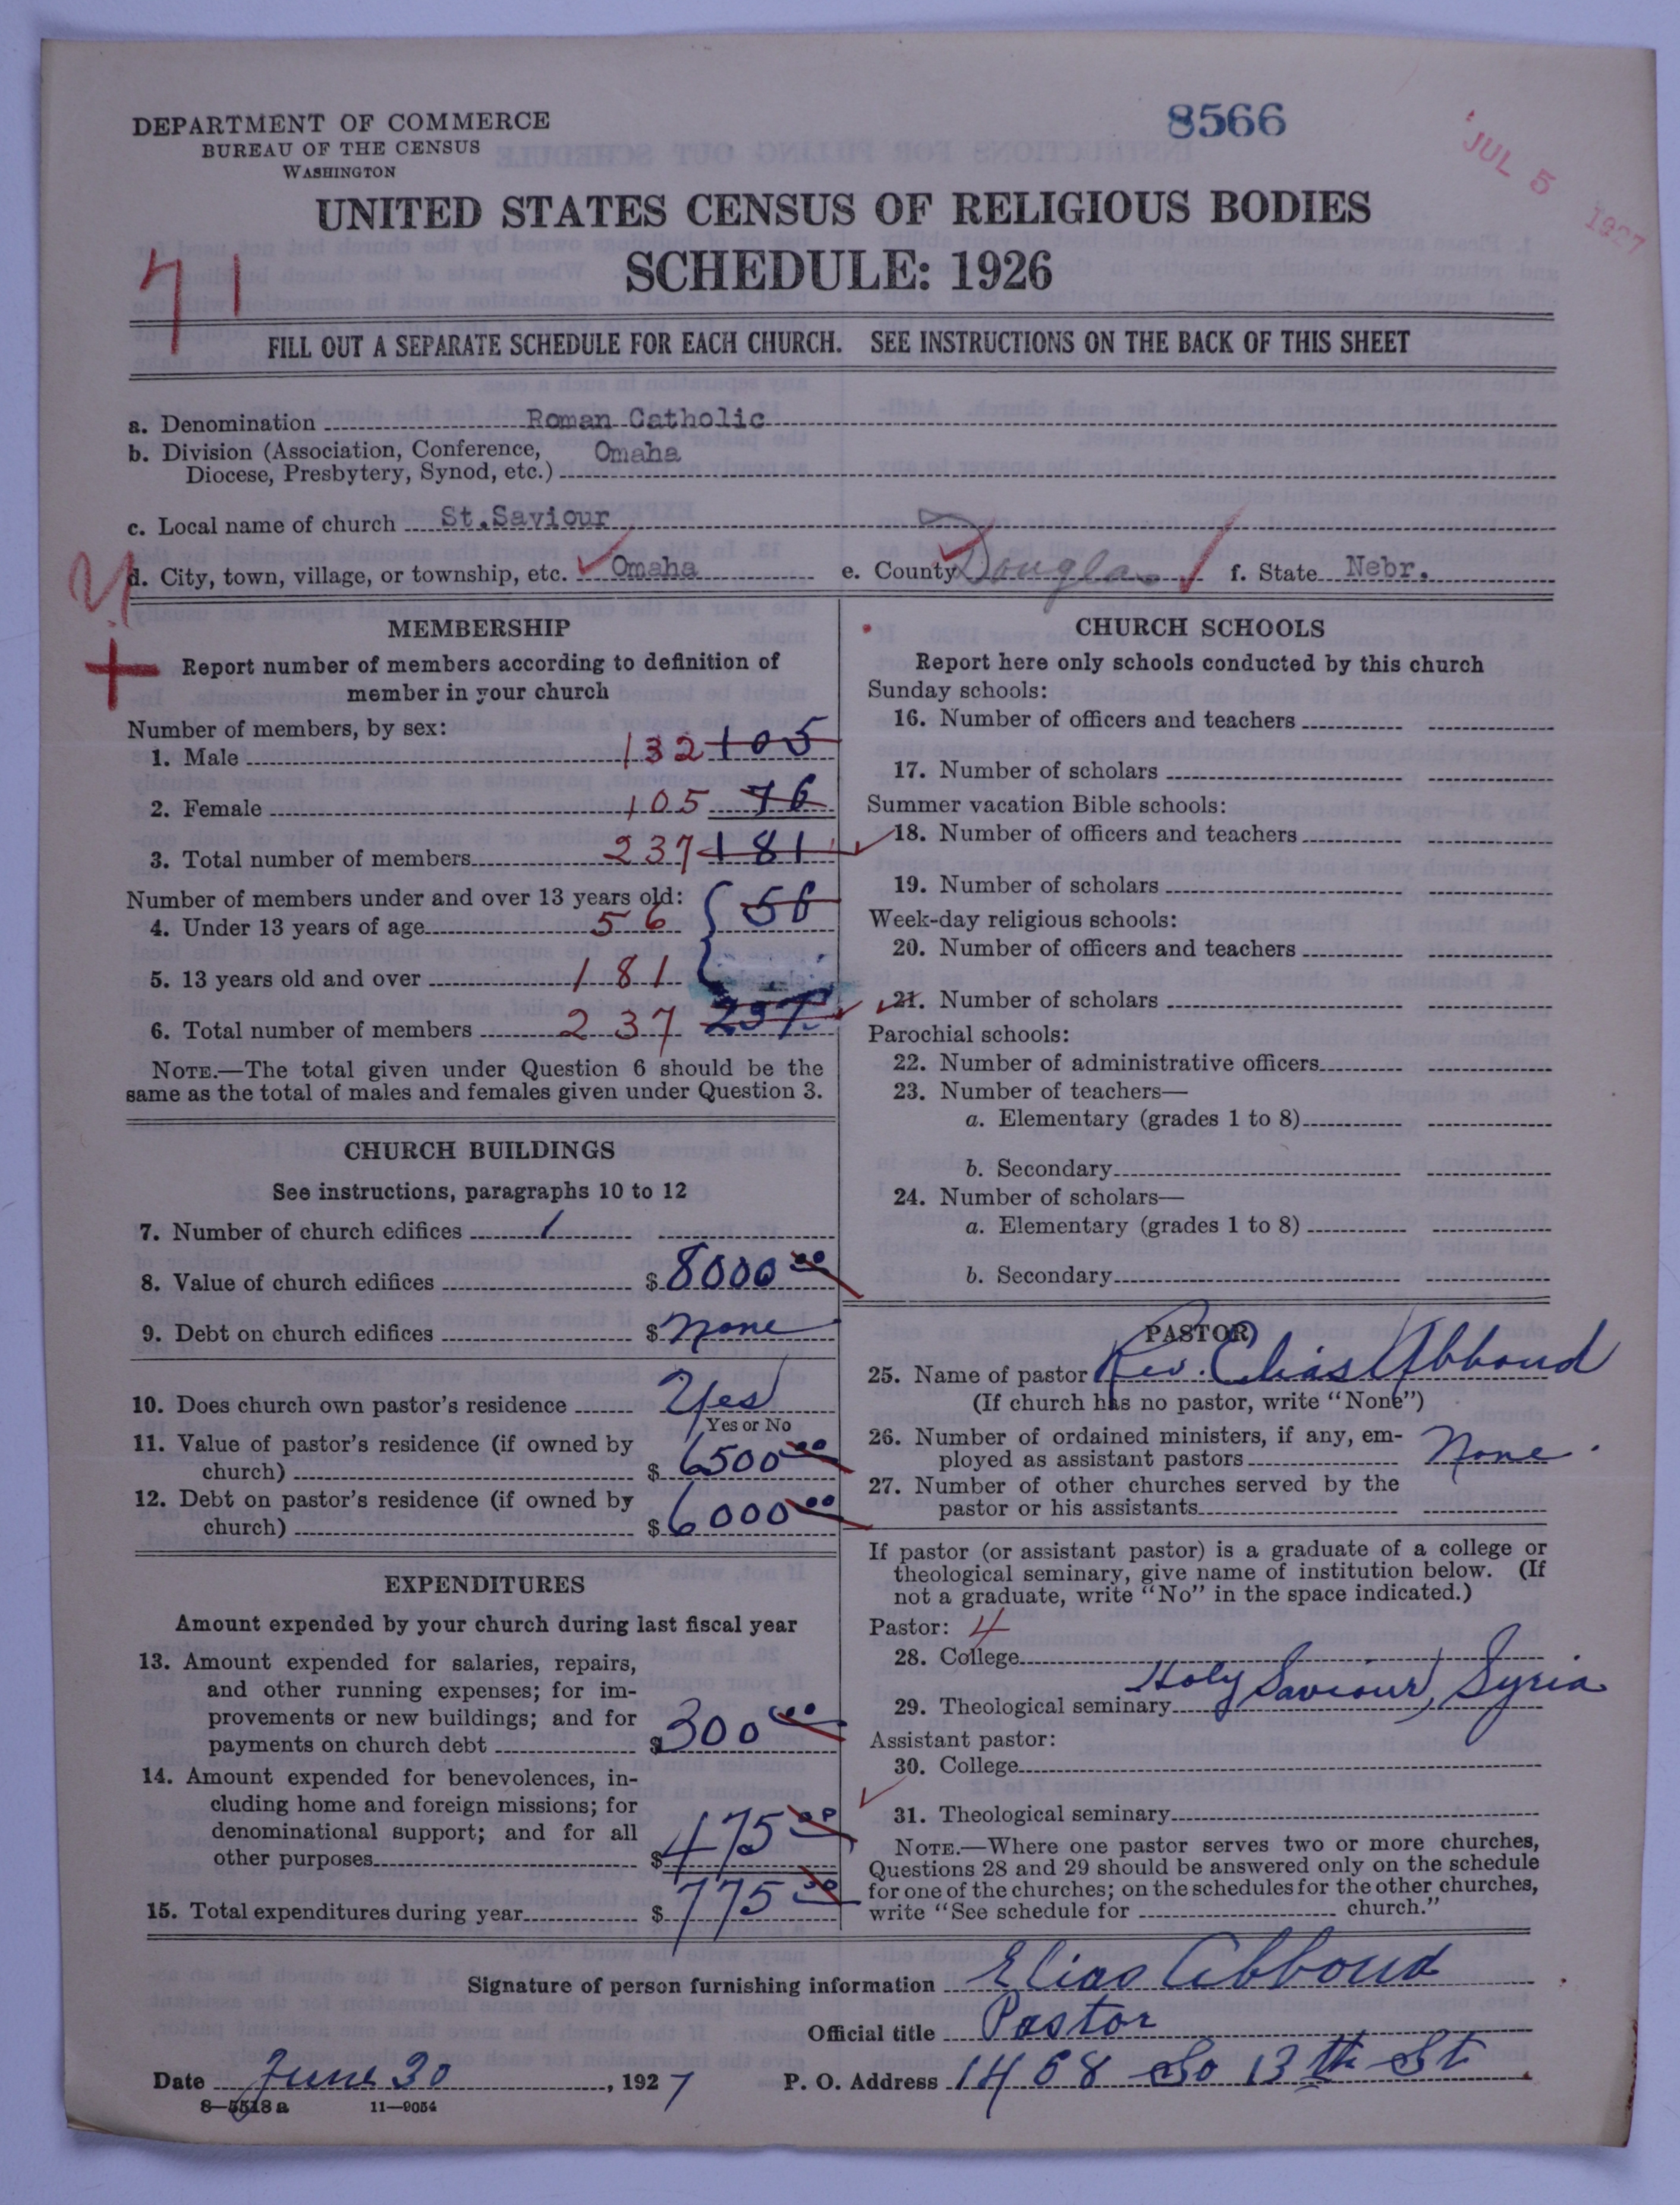 DEPARTMENT OF COMMERCE
BUREAU OF THE CENSUS
WASHINGTON
8566
JUL 5 1927
UNITED STATES CENSUS OF RELIGIOUS BODIES
SCHEDULE: 1926
71
FILL OUT A SEPARATE SCHEDULE FOR EACH CHURCH. SEE INSTRUCTIONS ON THE BACK OF THIS SHEET
a. Denomination Roman Catholic
b. Division (Association, Conference, Omaha
Diocese, Presbytery, Synod, etc.)
c. Local name of church St.Saviour
d. City, town, village, or township, etc. Omaha e. County Douglas f. State Nebr.
MEMBERSHIP
Report number of members according to definition of
member in your church
Number of members, by sex:
1. Male 132 105
2. Female 105 76
3. Total number of members 237 181
Number of members under and over 13 years old:
4. Under 13 years of age 56 56
5. 13 years old and over 181
6. Total number of members 237 237
NOTE.—The total given under Question 6 should be the
same as the total of males and females given under Question 3.
CHURCH BUILDINGS
See instructions, paragraphs 10 to 12
7. Number of church edifices 1
8. Value of church edifices $ 8000 00
9. Debt on church edifices $ None
10. Does church own pastor's residence Yes
Yes or No
11. Value of pastor's residence (if owned by
church) $ 6500 00
12. Debt on pastor's residence (if owned by
church) $ 6000 00
EXPENDITURES
Amount expended by your church during last fiscal year
13. Amount expended for salaries, repairs,
and other running expenses; for im-
provements or new buildings; and for
payments on church debt $ 300 00
14. Amount expended for benevolences, in-
cluding home and foreign missions; for
denominational support; and for all
other purposes $ 475 00
15. Total expenditures during year $ 775 00
CHURCH SCHOOLS
Report here only schools conducted by this church
Sunday schools:
16. Number of officers and teachers
17. Number of scholars
Summer vacation Bible schools:
18. Number of officers and teachers
19. Number of scholars
Week-day religious schools:
20. Number of officers and teachers
21. Number of scholars
Parochial schools:
22. Number of administrative officers
23. Number of teachers—
a. Elementary (grades 1 to 8)
b. Secondary
24. Number of scholars—
a. Elementary (grades 1 to 8)
b. Secondary
PASTOR
25. Name of pastor Rev. Elias Abboud
(If church has no pastor, write "None")
26. Number of ordained ministers, if any, em-
ployed as assistant pastors None.
27. Number of other churches served by the
pastor or his assistants
If pastor (or assistant pastor) is a graduate of a college or
theological seminary, give name of institution below. (If
not a graduate, write "No" in the space indicated.)
Pastor: 4
28. College
29. Theological seminary Holy Saviour, Syria
Assistant pastor:
30. College
31. Theological seminary
NOTE.—Where one pastor serves two or more churches,
Questions 28 and 29 should be answered only on the schedule
for one of the churches; on the schedules for the other churches,
write "See schedule for church."
Signature of person furnishing information Elias Abboud
Official title Pastor
Date June 30, 1927 P. O. Address 1468 So 13th St
8—5518a 11—9054